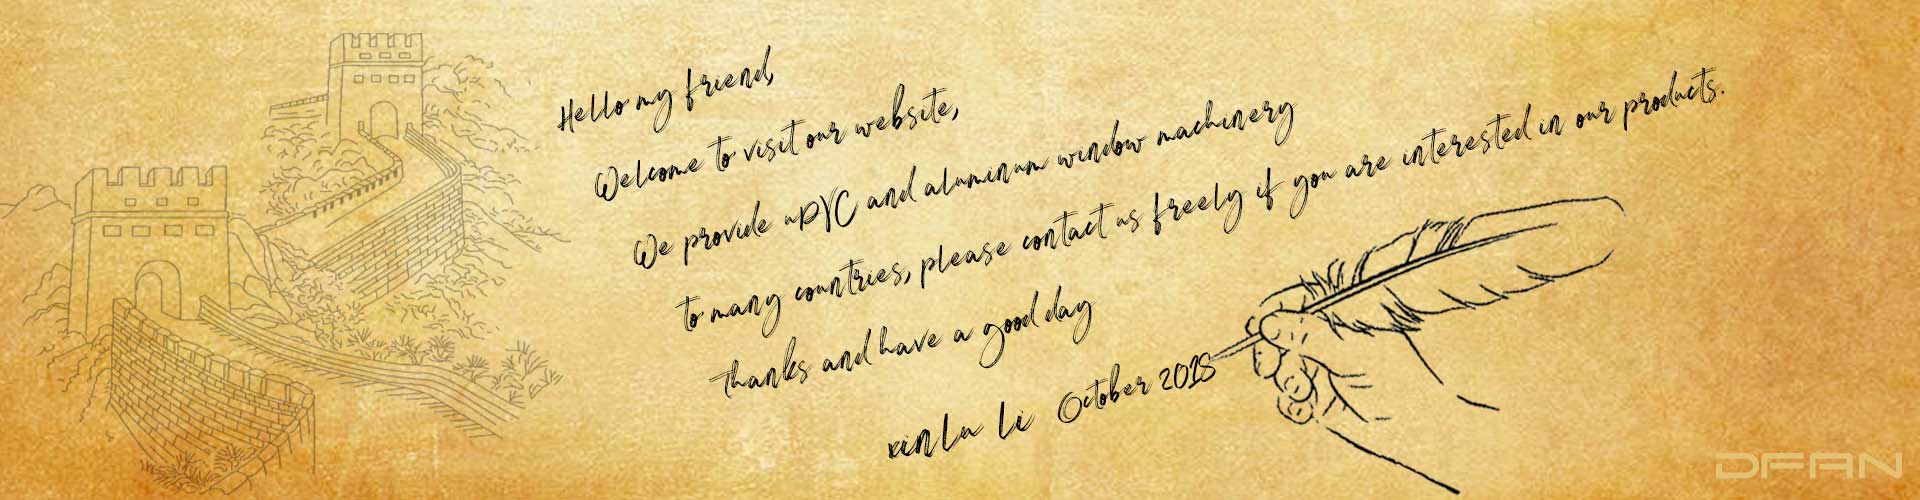 Hello my friend,
Welcome to visit our website,
We provide uPVC and aluminum window machinery
to many countries, please contact us freely if you are interested in our products.
thanks and have a good day
xinlu li October 2018
DFAN